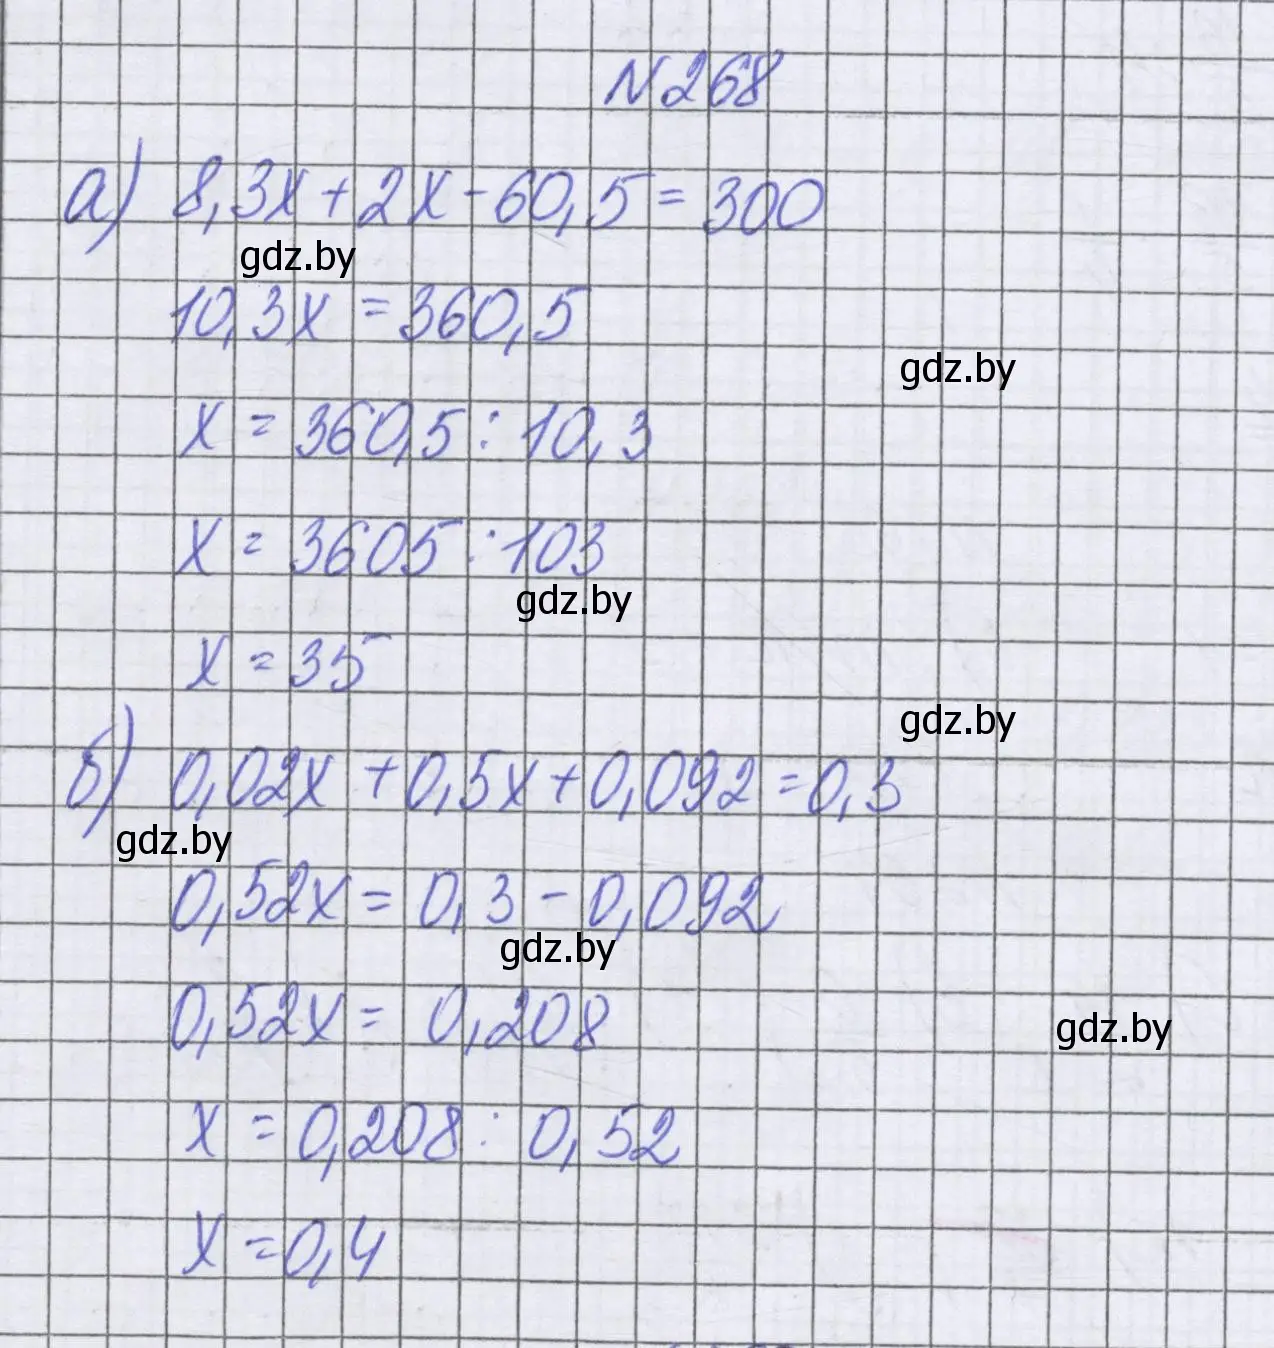 N268
а) 8,3x + 2x - 60,5 = 300
gdz.by
10,3x = 360,5
gdz.by
x = 360,5 : 10,3
x = 3605 : 103
gdz.by
x = 35
gdz.by
б) 0,02x + 0,5x + 0,092 = 0,3
gdz.by
0,52x = 0,3 - 0,092
gdz.by
0,52x = 0,208
gdz.by
x = 0,208 : 0,52
x = 0,4